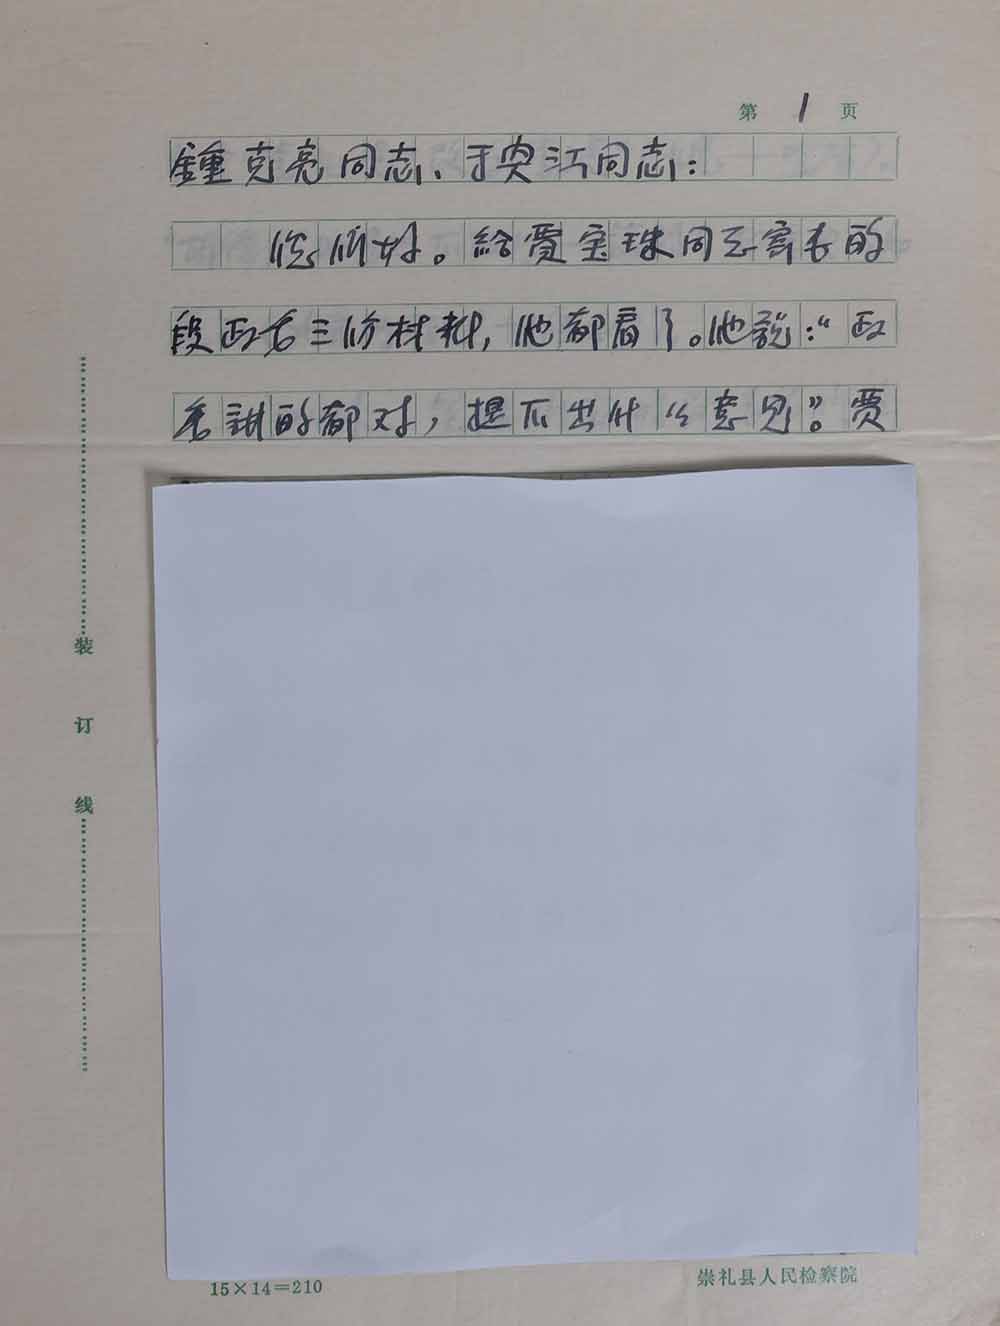 第 1 页
鍾克亮同志、于奕江同志:
您们好。给贾宝珠同志寄去的
段政右三份材料,他都看了。他说:“政
右讲的都对,提不出什么意见”。贾
装
订
线
15×14=210
崇礼县人民检察院